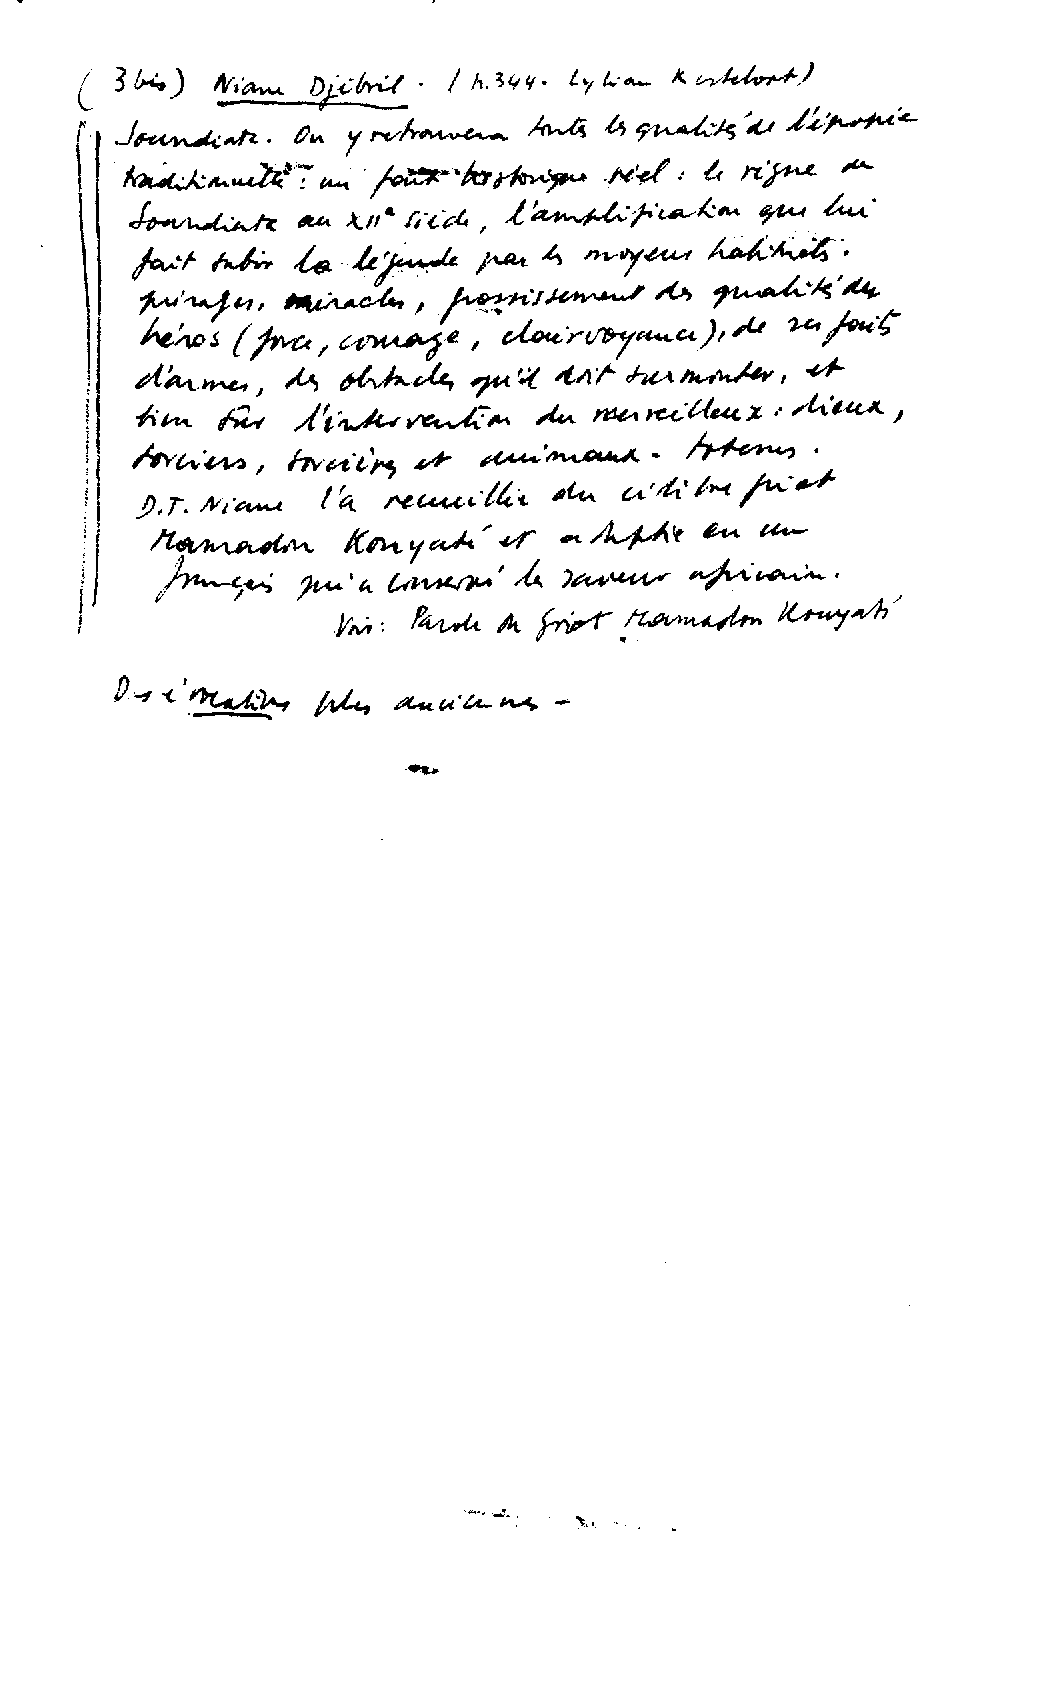 (3 bis) Niane Djibril. (p.344. Lylian Kesteloot)
Soundiata. On y retrouvera toutes les qualités de l'épopée
traditionnelle : un fait historique réel : le règne de
Soundiata au XIIe siècle, l'amplification que lui
fait subir la légende par les moyens habituels.
présages, miracles, grossissement des qualités du
héros (force, courage, clairvoyance), de ses faits
d'armes, des obstacles qu'il doit surmonter, et
bien sûr l'intervention du merveilleux : dieux,
sorciers, sorcières et animaux - totems.
D.T. Niane l'a recueillie du célèbre griot
Mamadou Kouyaté et adaptée en un
français qui a conservé la saveur africaine.
Voir : Parole de Griot Mamadou Kouyaté
plus anciennes -